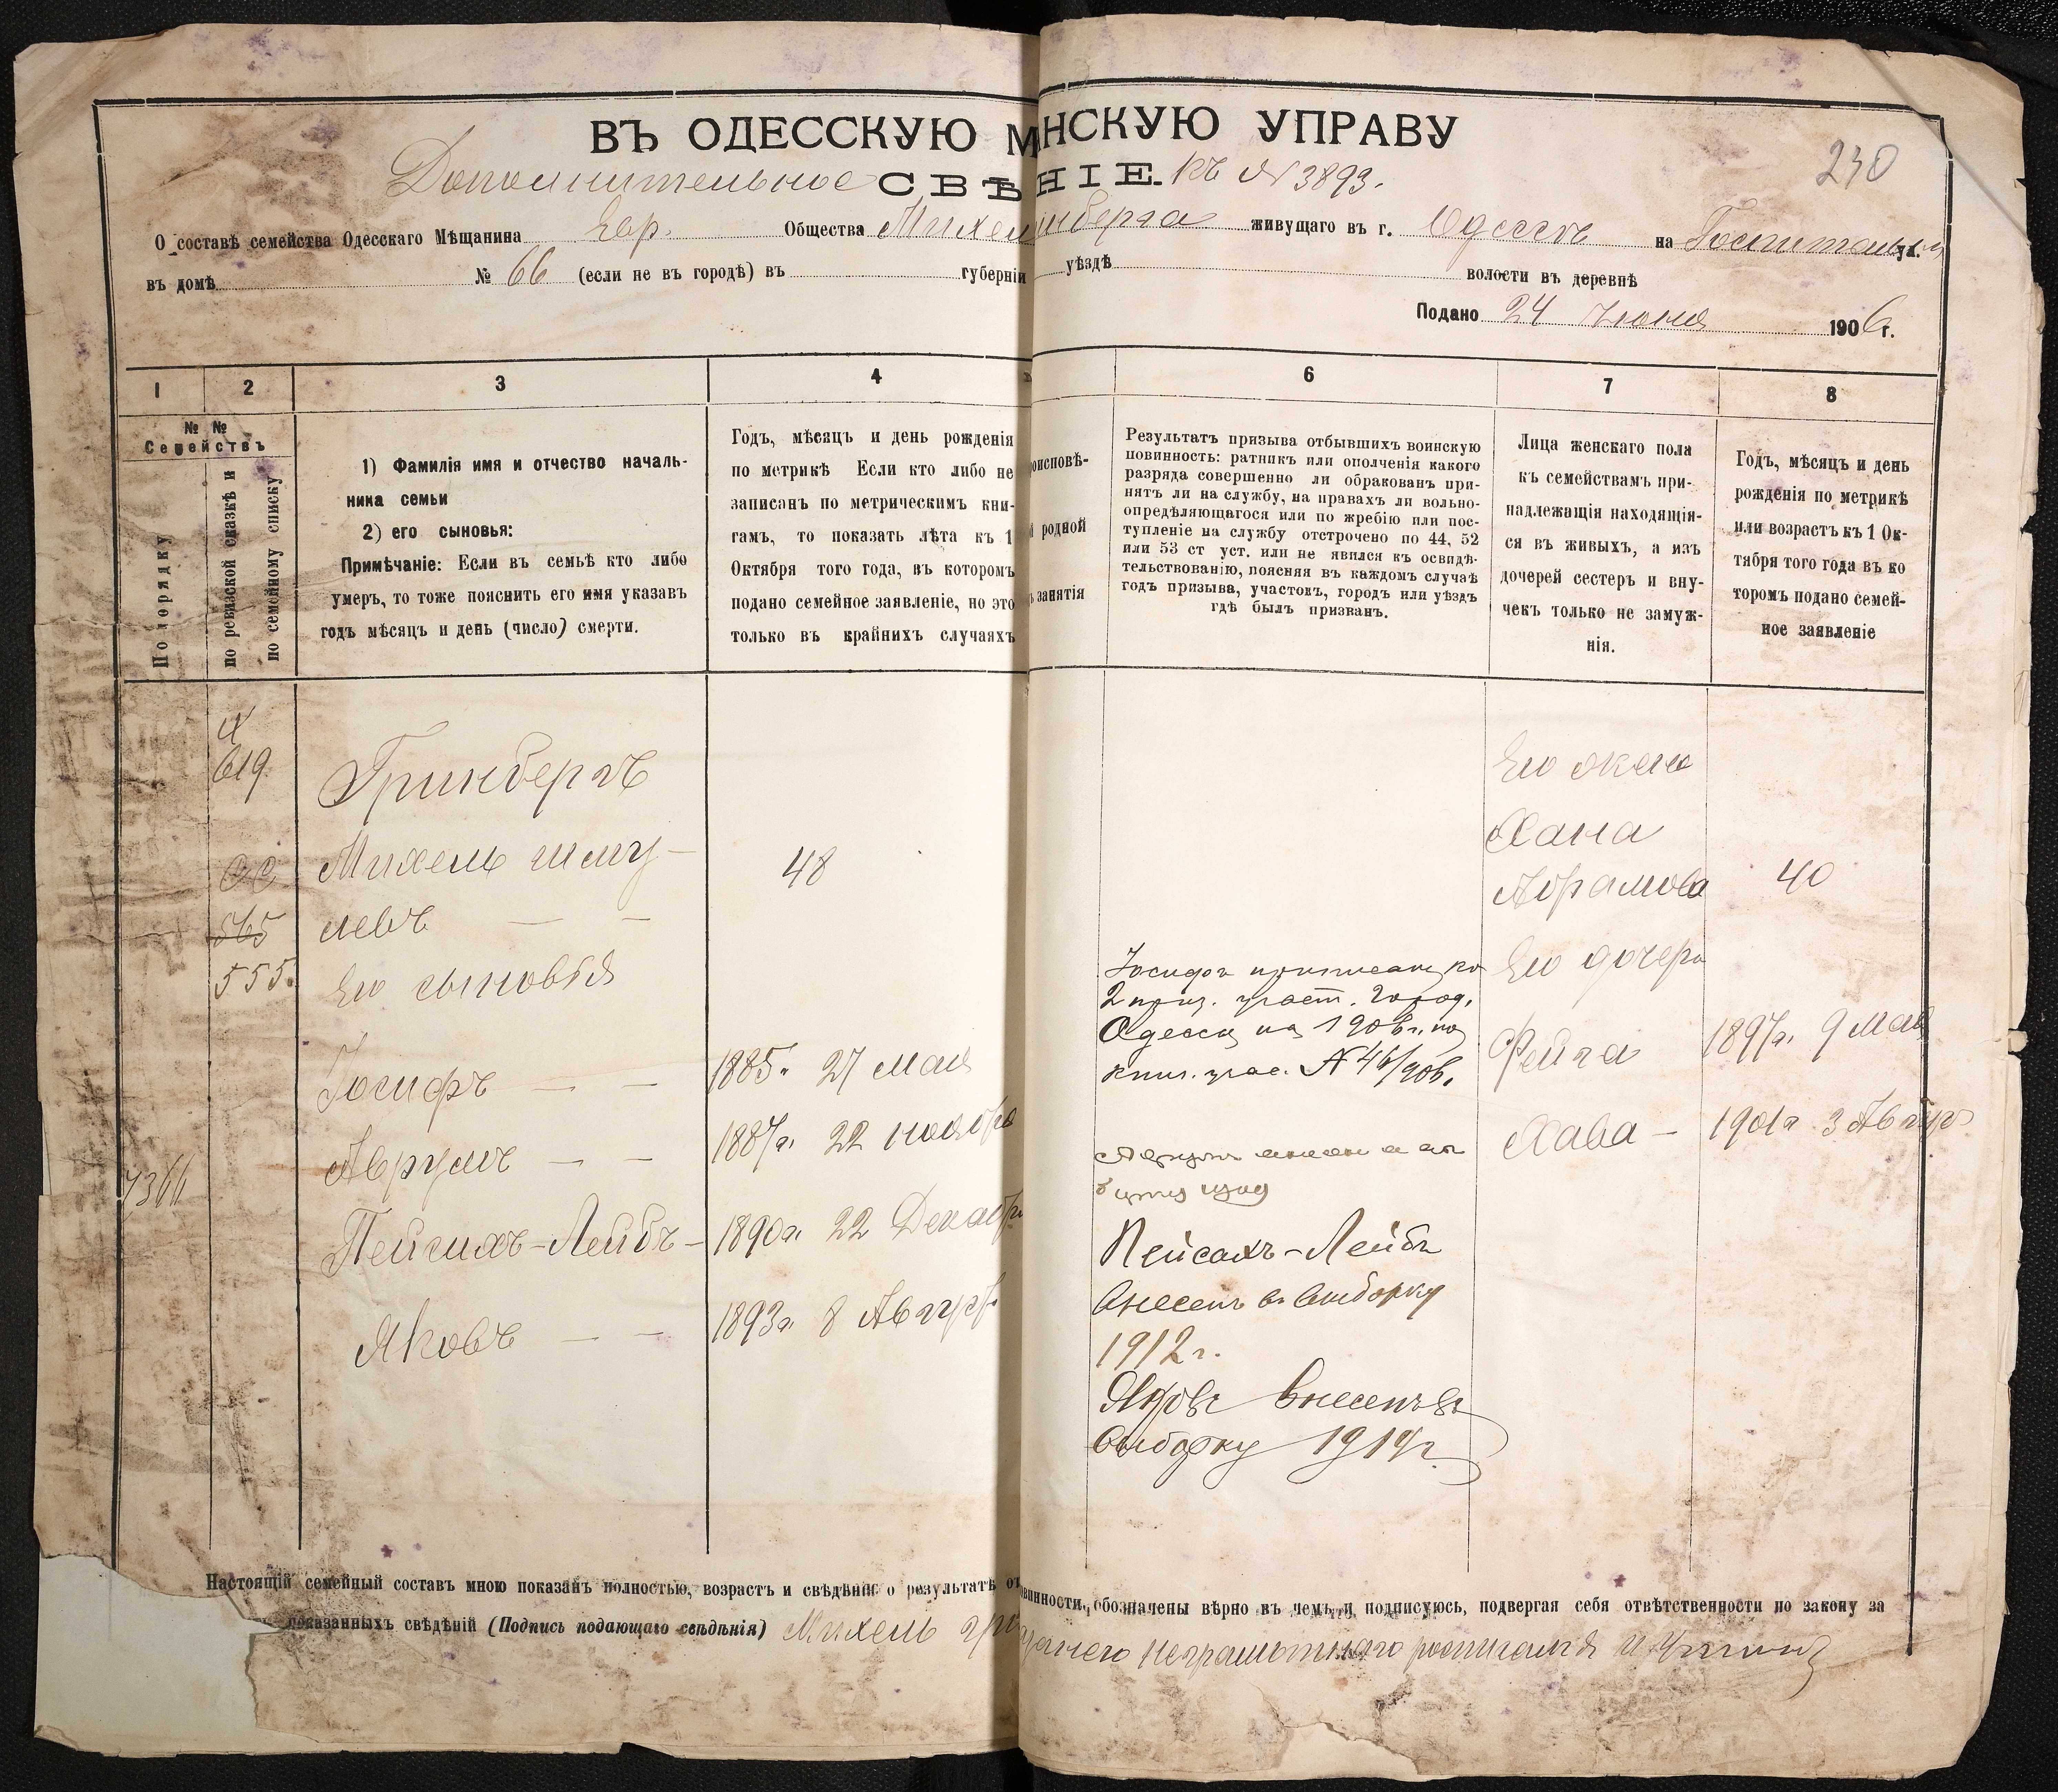 ВЪ ОДЕССКУЮ М НСКУЮ УПРАВУ
240
Дополнительное СВѢ НІЕ. къ № 3893.
О составѣ семейства Одесскаго Мѣщанина Евр. Общества Михел инберга живущаго въ г. Одессѣ на ул.
въ домѣ № 66 (если не въ городѣ) въ губерніи уѣздѣ волости въ деревнѣ
Подано 24 Іюня 1906 г.
1 2 3 4 6 7 8
№ №
Семействъ
По порядку
по ревизской сказкѣ и
по семейному списку
1) Фамилія имя и отчество началь-
ника семьи
2) его сыновья:
Примѣчаніе: Если въ семьѣ кто либо
умеръ, то тоже пояснить его имя указавъ
годъ мѣсяцъ и день (число) смерти.
Годъ, мѣсяцъ и день рожденія
по метрикѣ Если кто либо не
записанъ по метрическимъ кни-
гамъ, то показать лѣта къ 1
Октября того года, въ которомъ
подано семейное заявленіе, но это
только въ крайнихъ случаяхъ
роисповѣ-
родной
занятія
Результатъ призыва отбывшихъ воинскую
повинность: ратникъ или ополченія какого
разряда совершенно ли обракованъ при-
нятъ ли на службу, на правахъ ли вольно-
опредѣляющагося или по жребію или пос-
тупленіе на службу отстрочено по 44, 52
или 53 ст уст. или не явился къ освидѣ-
тельствованію, поясняя въ каждомъ случаѣ
годъ призыва, участокъ, городъ или уѣздъ
гдѣ былъ призванъ.
Лица женскаго пола
къ семействамъ при-
надлежащія находящія-
ся въ живыхъ, а изъ
дочерей сестеръ и вну-
чекъ только не замуж-
нія.
Годъ, мѣсяцъ и день
рожденія по метрикѣ
или возрастъ къ 1 Ок-
тября того года въ ко
торомъ подано семей-
ное заявленіе
№
619
565
555.
7366
Гринбергъ
Михель Шму-
левъ
Его сыновья
Іосифъ
Аврумъ
Пейсихъ-Лейбъ-
Яковъ
48
1885г. 27 мая
1887г. 22 ноября
1890г. 22 Декабр
1893г. 8 Август
Іосифъ приписанъ ко
2 приз. участ. город.
Одессы на 1906 г. по
прис. учас. № 46/906.
Аврумъ
Пейсахъ-Лейбъ
Внесенъ въ выборку
1912 г.
Яковъ Внесенъ въ
выборку 1914 г.
Его жена
Хана
Абрамова
Его дочери
Фейга
Хава -
40
1897г. 9 Мая
1901г. 3 Август
Настоящій семейный составъ мною показанъ полностью, возрастъ и свѣдѣнія о результатѣ от винности, обозначены вѣрно въ чемъ и подписуюсь, подвергая себя отвѣтственности по закону за
показанныхъ свѣдѣній (Подпись подающаго свѣдѣнія) Михель гри за него неграмотнаго росписался